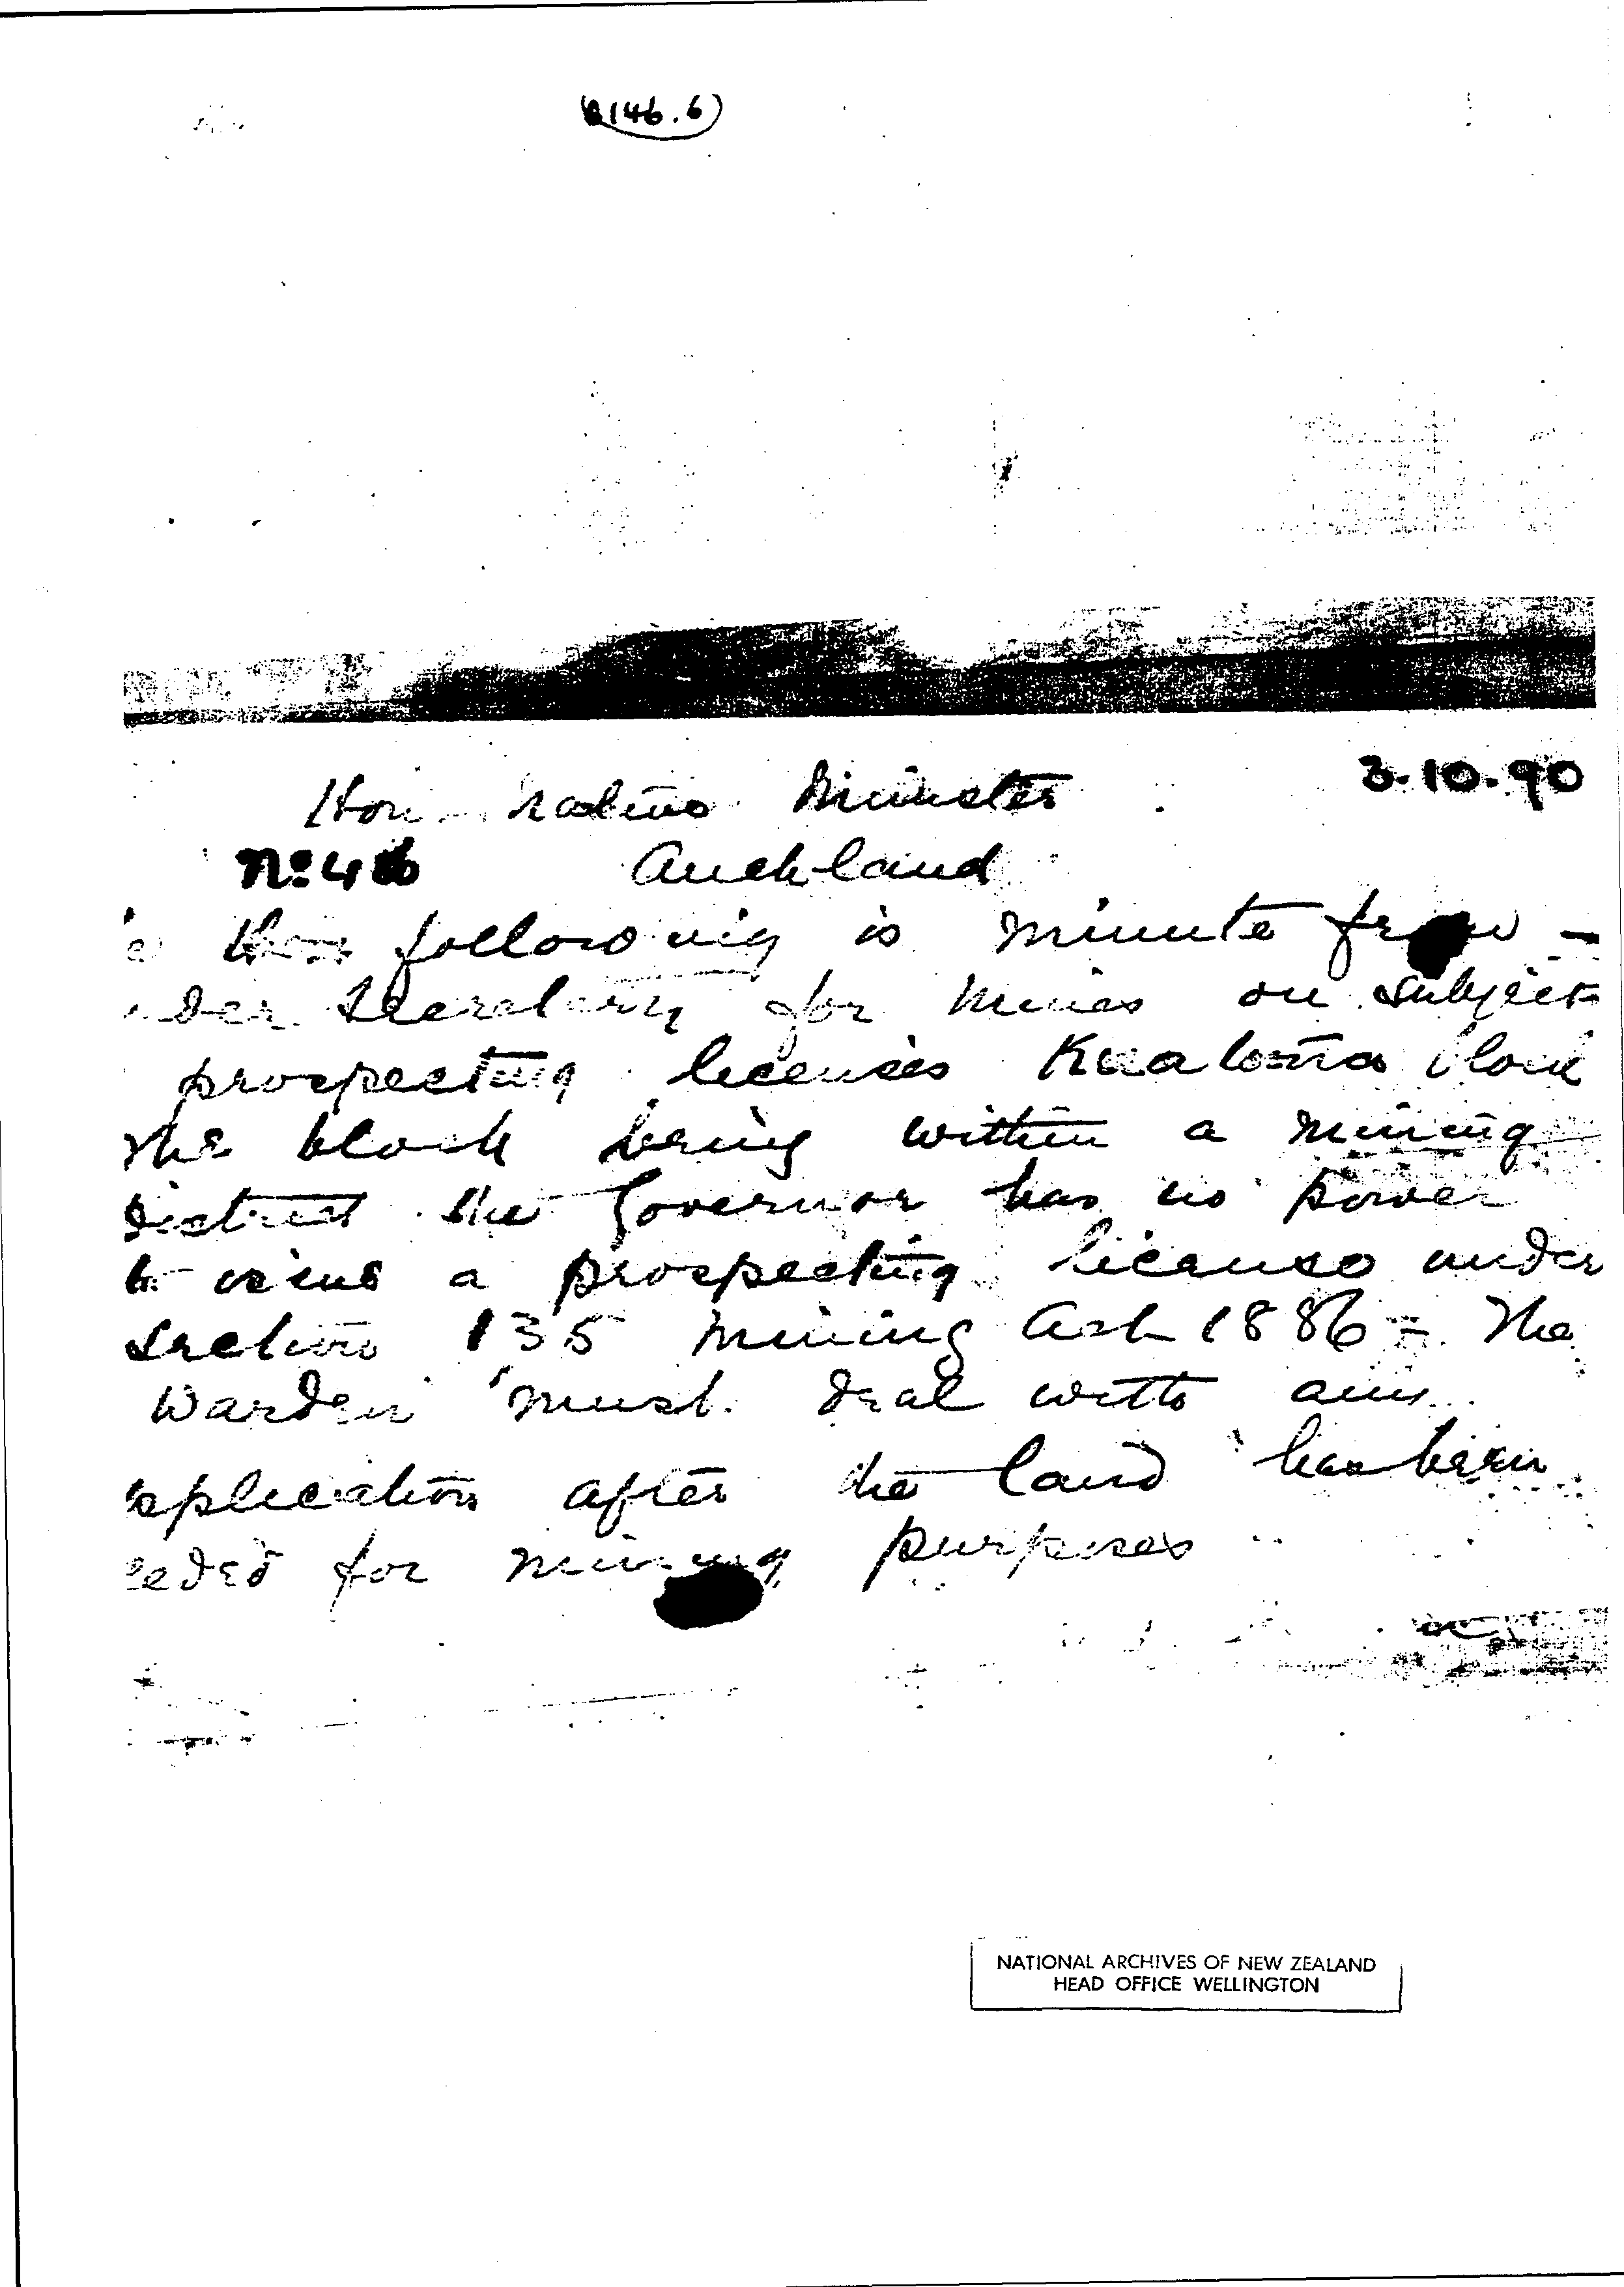 146.6
3.10.90
Hon Native Minister
No 46 Auckland
the following is minute from
der Secretary for Mines on subject
prospecting licenses Kuaotunu block
The block being within a mining
District the Governor has no power
to issue a prospecting license under
section 135 Mining Act 1886 - The
Warden must deal with any
application after the land has been
ceded for mining purposes
NATIONAL ARCHIVES OF NEW ZEALAND
HEAD OFFICE WELLINGTON